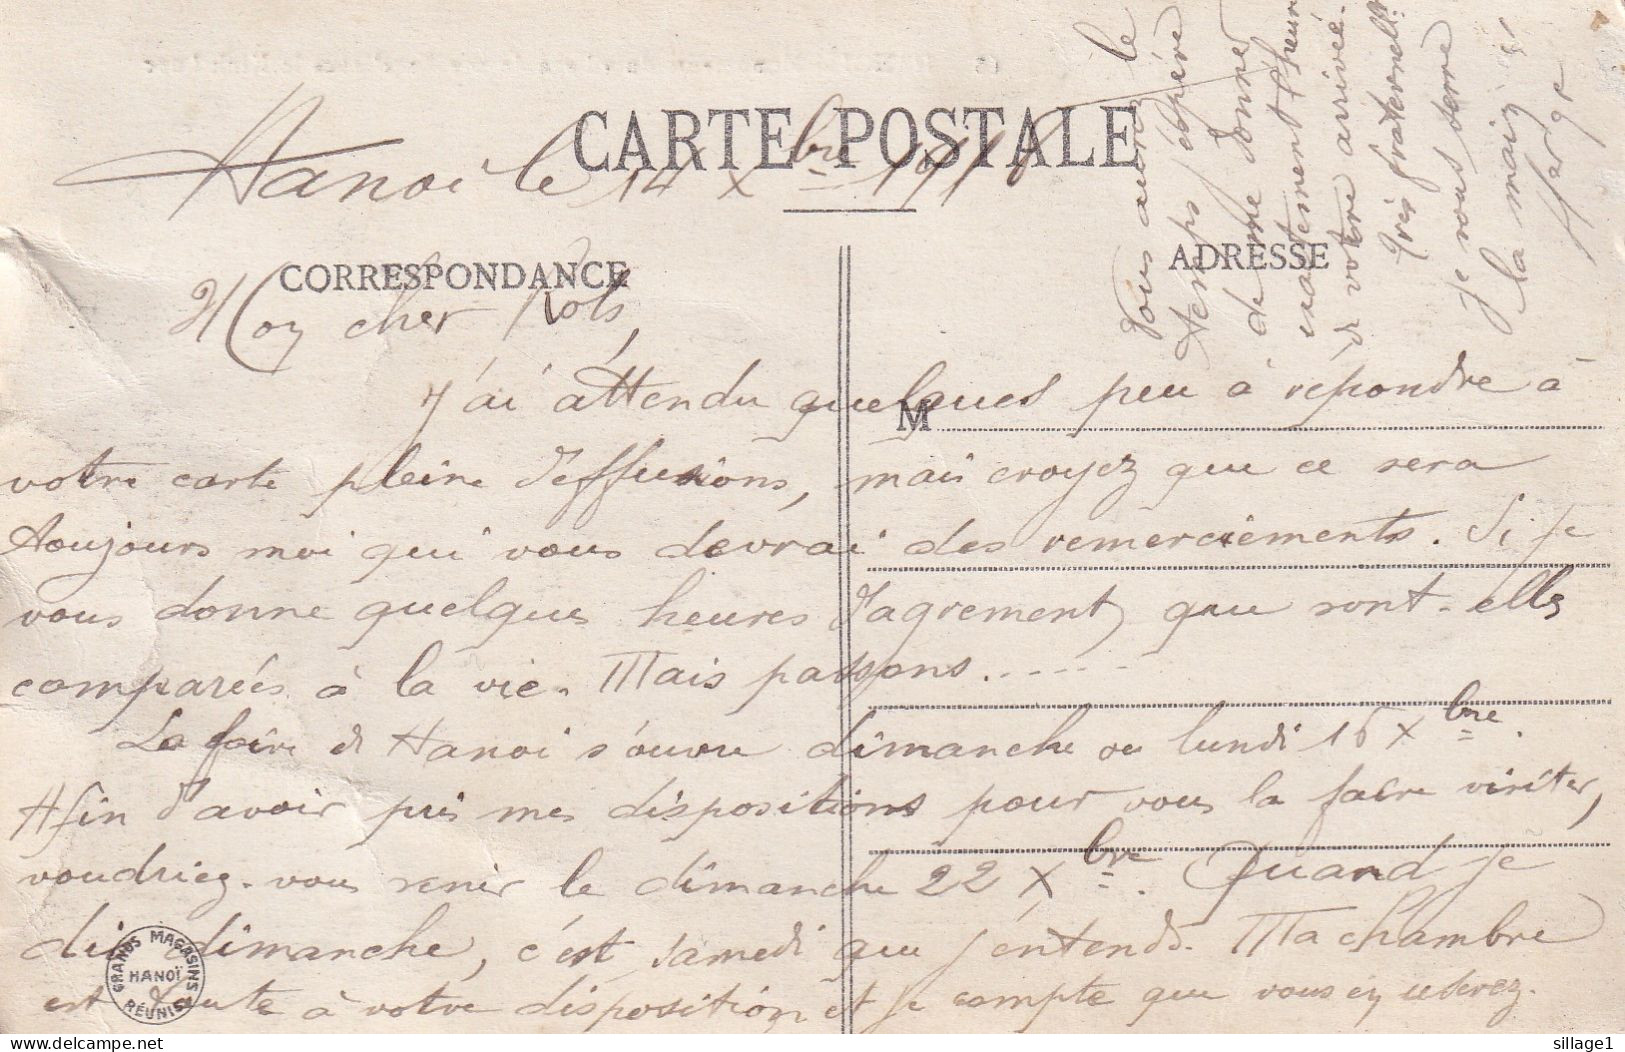 CARTE POSTALE
Hanoi le 14 Xbre 191
CORRESPONDANCE
ADRESSE
Mon cher Rols,
J'ai attendu quelques peu à répondre à
M
votre carte pleine d'effusions, mais croyez que ce sera
toujours moi qui vous devrai des remerciements. Si je
vous donne quelques heures d'agrement, que sont-elles
comparées à la vie. Mais passons.....
La foire de Hanoi s'ouvre dimanche ou lundi 16 Xbre.
Afin d'avoir pris mes dispositions pour vous la faire visiter,
voudriez-vous venir le dimanche 22 Xbre. Quand je
dis dimanche, c'est samedi que j'entends. Ma chambre
est toute à votre disposition et je compte que vous en userez.
Vous aurez le
temps j'espère
de me donner
exactement l'heure
de votre arrivée.
Très fraternellt
je vous serre
la main
GRANDS MAGASINS RÉUNIS
HANOÏ
sillage1